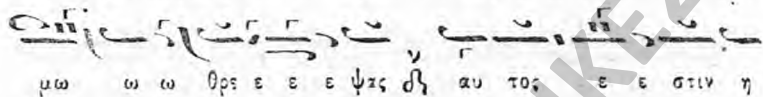 μω ω ω θρε ε ε ε ψας αυ τος ε ε στιν η